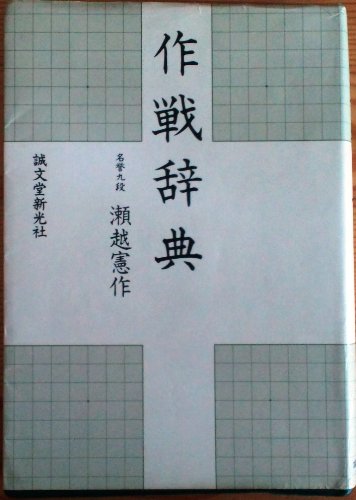 作戦辞典
名誉九段 瀬越憲作
誠文堂新光社